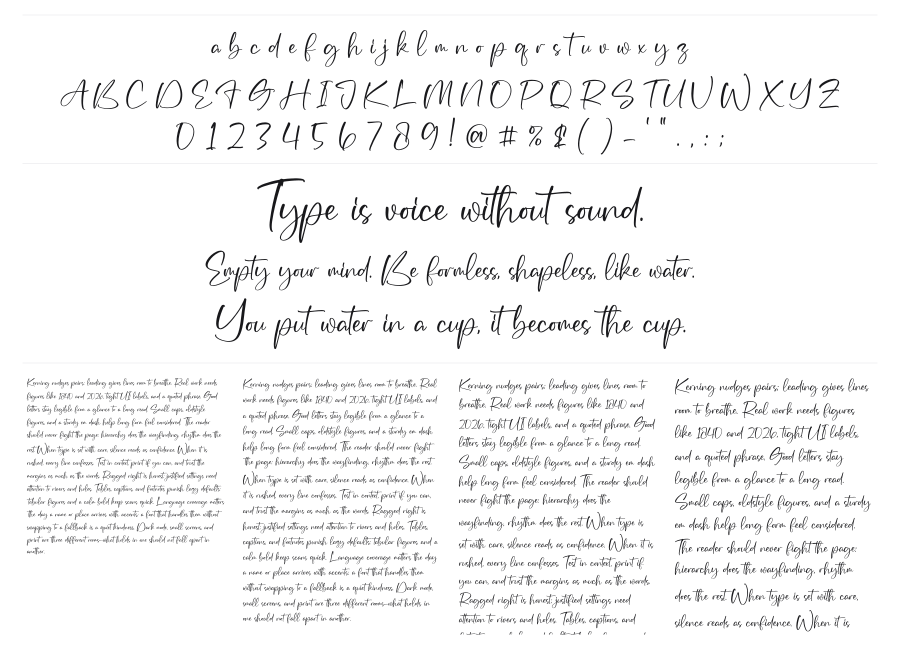 a b c d e f g h i j k l m n o p q r s t u v w x y z
A B C D E F G H I J K L M N O P Q R S T U V W X Y Z
0 1 2 3 4 5 6 7 8 9 ! @ # % $ ( ) - ' " . , : ;
Type is voice without sound.
Empty your mind. Be formless, shapeless, like water.
You put water in a cup, it becomes the cup.
Kerning nudges pairs; leading gives lines room to breathe. Real work needs
figures like 1840 and 2026, tight UI labels, and a quoted phrase. Good
letters stay legible from a glance to a long read. Small caps, oldstyle
figures, and a sturdy em dash help long form feel considered. The reader
should never fight the page: hierarchy does the wayfinding, rhythm does the
rest. When type is set with care, silence reads as confidence. When it is
rushed, every line confesses. Test in context, print if you can, and trust the
margins as much as the words. Ragged right is honest; justified settings need
attention to rivers and holes. Tables, captions, and footnotes punish leggy defaults;
tabular figures and a calm bold keep scans quick. Language coverage matters
the day a name or place arrives with accents; a font that handles them without
swapping to a fallback is a quiet kindness. Dark mode, small screens, and
print are three different rooms—what holds in one should not fall apart in
another.
Kerning nudges pairs; leading gives lines room to breathe. Real
work needs figures like 1840 and 2026, tight UI labels, and
a quoted phrase. Good letters stay legible from a glance to a
long read. Small caps, oldstyle figures, and a sturdy em dash
help long form feel considered. The reader should never fight
the page: hierarchy does the wayfinding, rhythm does the rest.
When type is set with care, silence reads as confidence. When
it is rushed, every line confesses. Test in context, print if you can,
and trust the margins as much as the words. Ragged right is
honest; justified settings need attention to rivers and holes. Tables,
captions, and footnotes punish leggy defaults; tabular figures and a
calm bold keep scans quick. Language coverage matters the day
a name or place arrives with accents; a font that handles them
without swapping to a fallback is a quiet kindness. Dark mode,
small screens, and print are three different rooms—what holds in
one should not fall apart in another.
Kerning nudges pairs; leading gives lines room to
breathe. Real work needs figures like 1840 and
2026, tight UI labels, and a quoted phrase. Good
letters stay legible from a glance to a long read.
Small caps, oldstyle figures, and a sturdy em dash
help long form feel considered. The reader should
never fight the page: hierarchy does the
wayfinding, rhythm does the rest. When type is
set with care, silence reads as confidence. When it is
rushed, every line confesses. Test in context, print if
you can, and trust the margins as much as the words.
Ragged right is honest; justified settings need
attention to rivers and holes. Tables, captions, and
Kerning nudges pairs; leading gives lines
room to breathe. Real work needs figures
like 1840 and 2026, tight UI labels,
and a quoted phrase. Good letters stay
legible from a glance to a long read.
Small caps, oldstyle figures, and a sturdy
em dash help long form feel considered.
The reader should never fight the page:
hierarchy does the wayfinding, rhythm
does the rest. When type is set with care,
silence reads as confidence. When it is